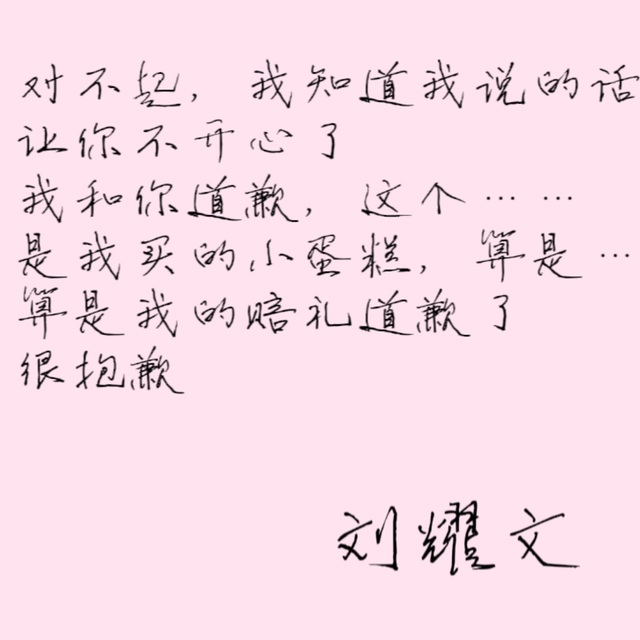 对不起，我知道我说的话
让你不开心了
我和你道歉，这个……
是我买的小蛋糕，算是…
算是我的赔礼道歉了
很抱歉
刘耀文